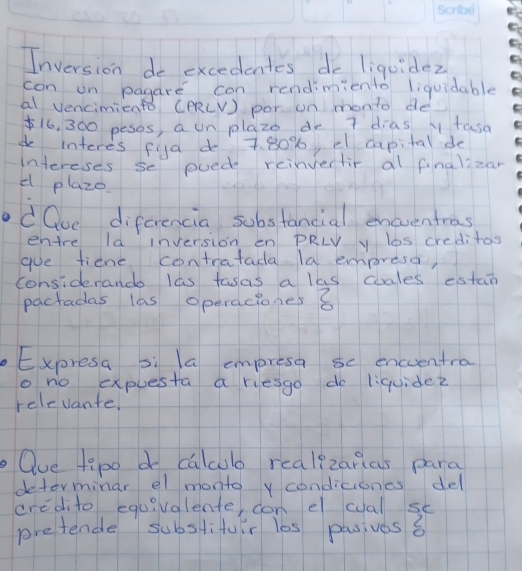 Scribe
Inversión de excedentes de liquidez
con un pagaré con rendimiento liquidable
al vencimiento (PRLV) por un monto de
$16,300 pesos, a un plazo de 7 dias y tasa
de interes fija de 7.80%, el capital de
intereses se puede reinvertir al finalizar
el plazo.
• ¿Que diferencia substancial encuentras
entre la inversion en PRLV y los creditos
que tiene contratada la empresa,
considerando las tasas a las cuales están
pactadas las operaciones?
• Expresa si la empresa se encuentra
o no expuesta a riesgo de liquidez
relevante.
• Que tipo de cálculo realizarias para
determinar el monto y condiciones del
crédito equivalente, con el cual se
pretende substituir los pasivos?